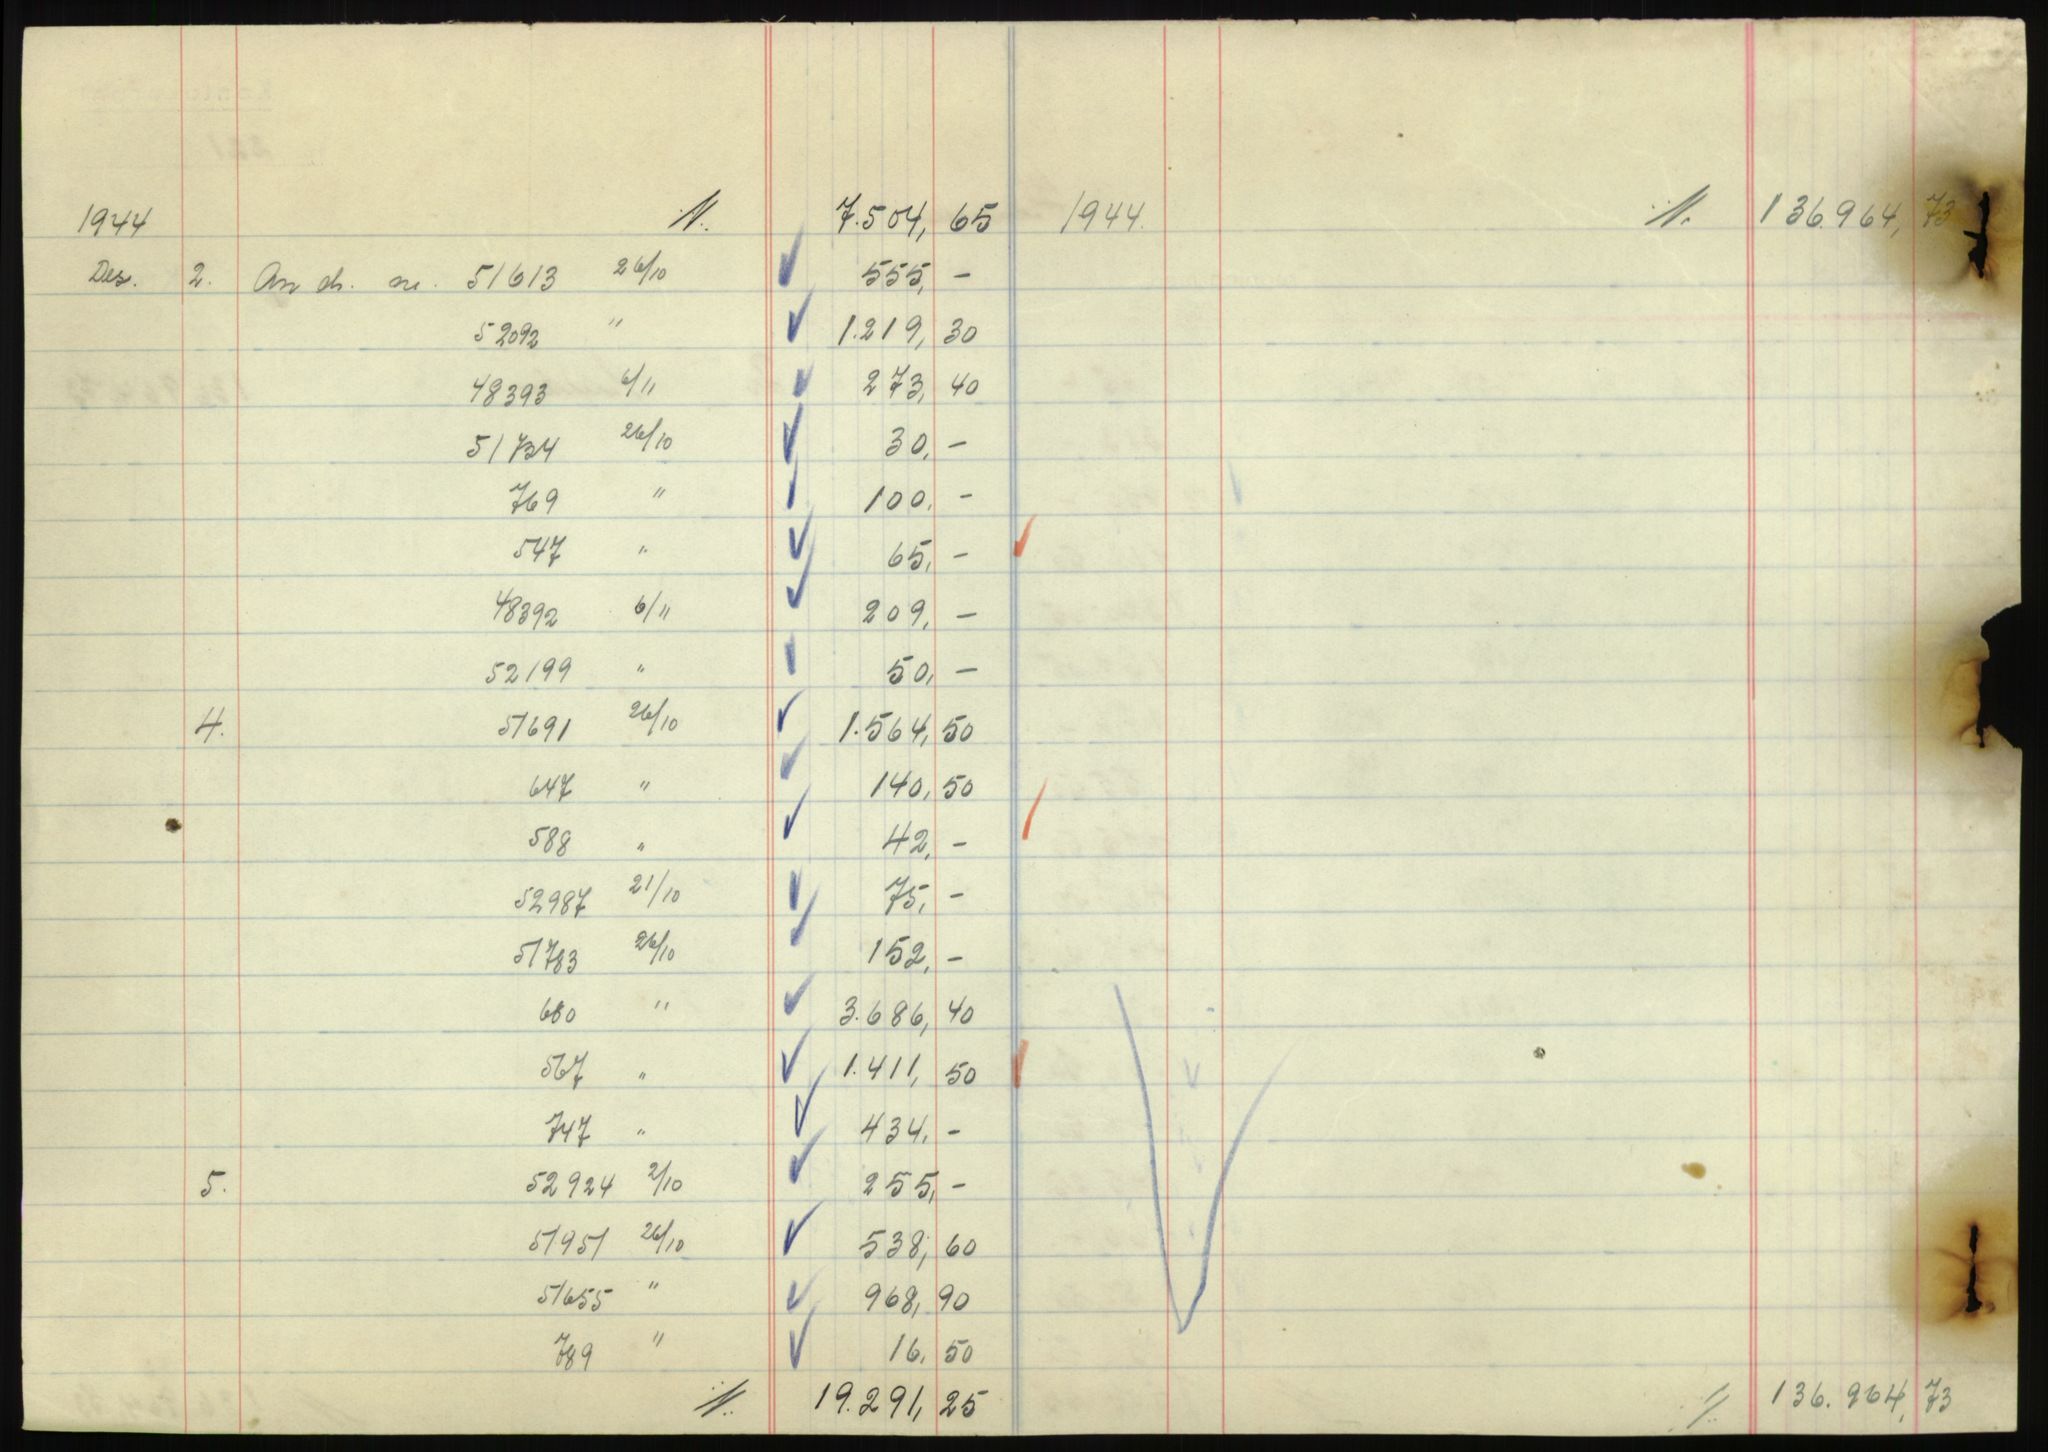 1944 7.504,65 1944. 136.964,73
Des. 2. An ch. nr. 51613 26/10 555,-
52092 " 1.219,30
48393 6/11 273,40
51734 26/10 30,-
769 " 100,-
547 " 65,-
48392 6/11 209,-
52199 " 50,-
4. 51691 26/10 1.564,50
647 " 140,50
588 " 42,-
52987 21/10 75,-
51783 26/10 152,-
680 " 3.686,40
567 " 1.411,50
747 " 434,-
5. 52924 2/10 255,-
51951 26/10 538,60
51655 " 968,90
789 " 16,50
19.291,25 136.964,73